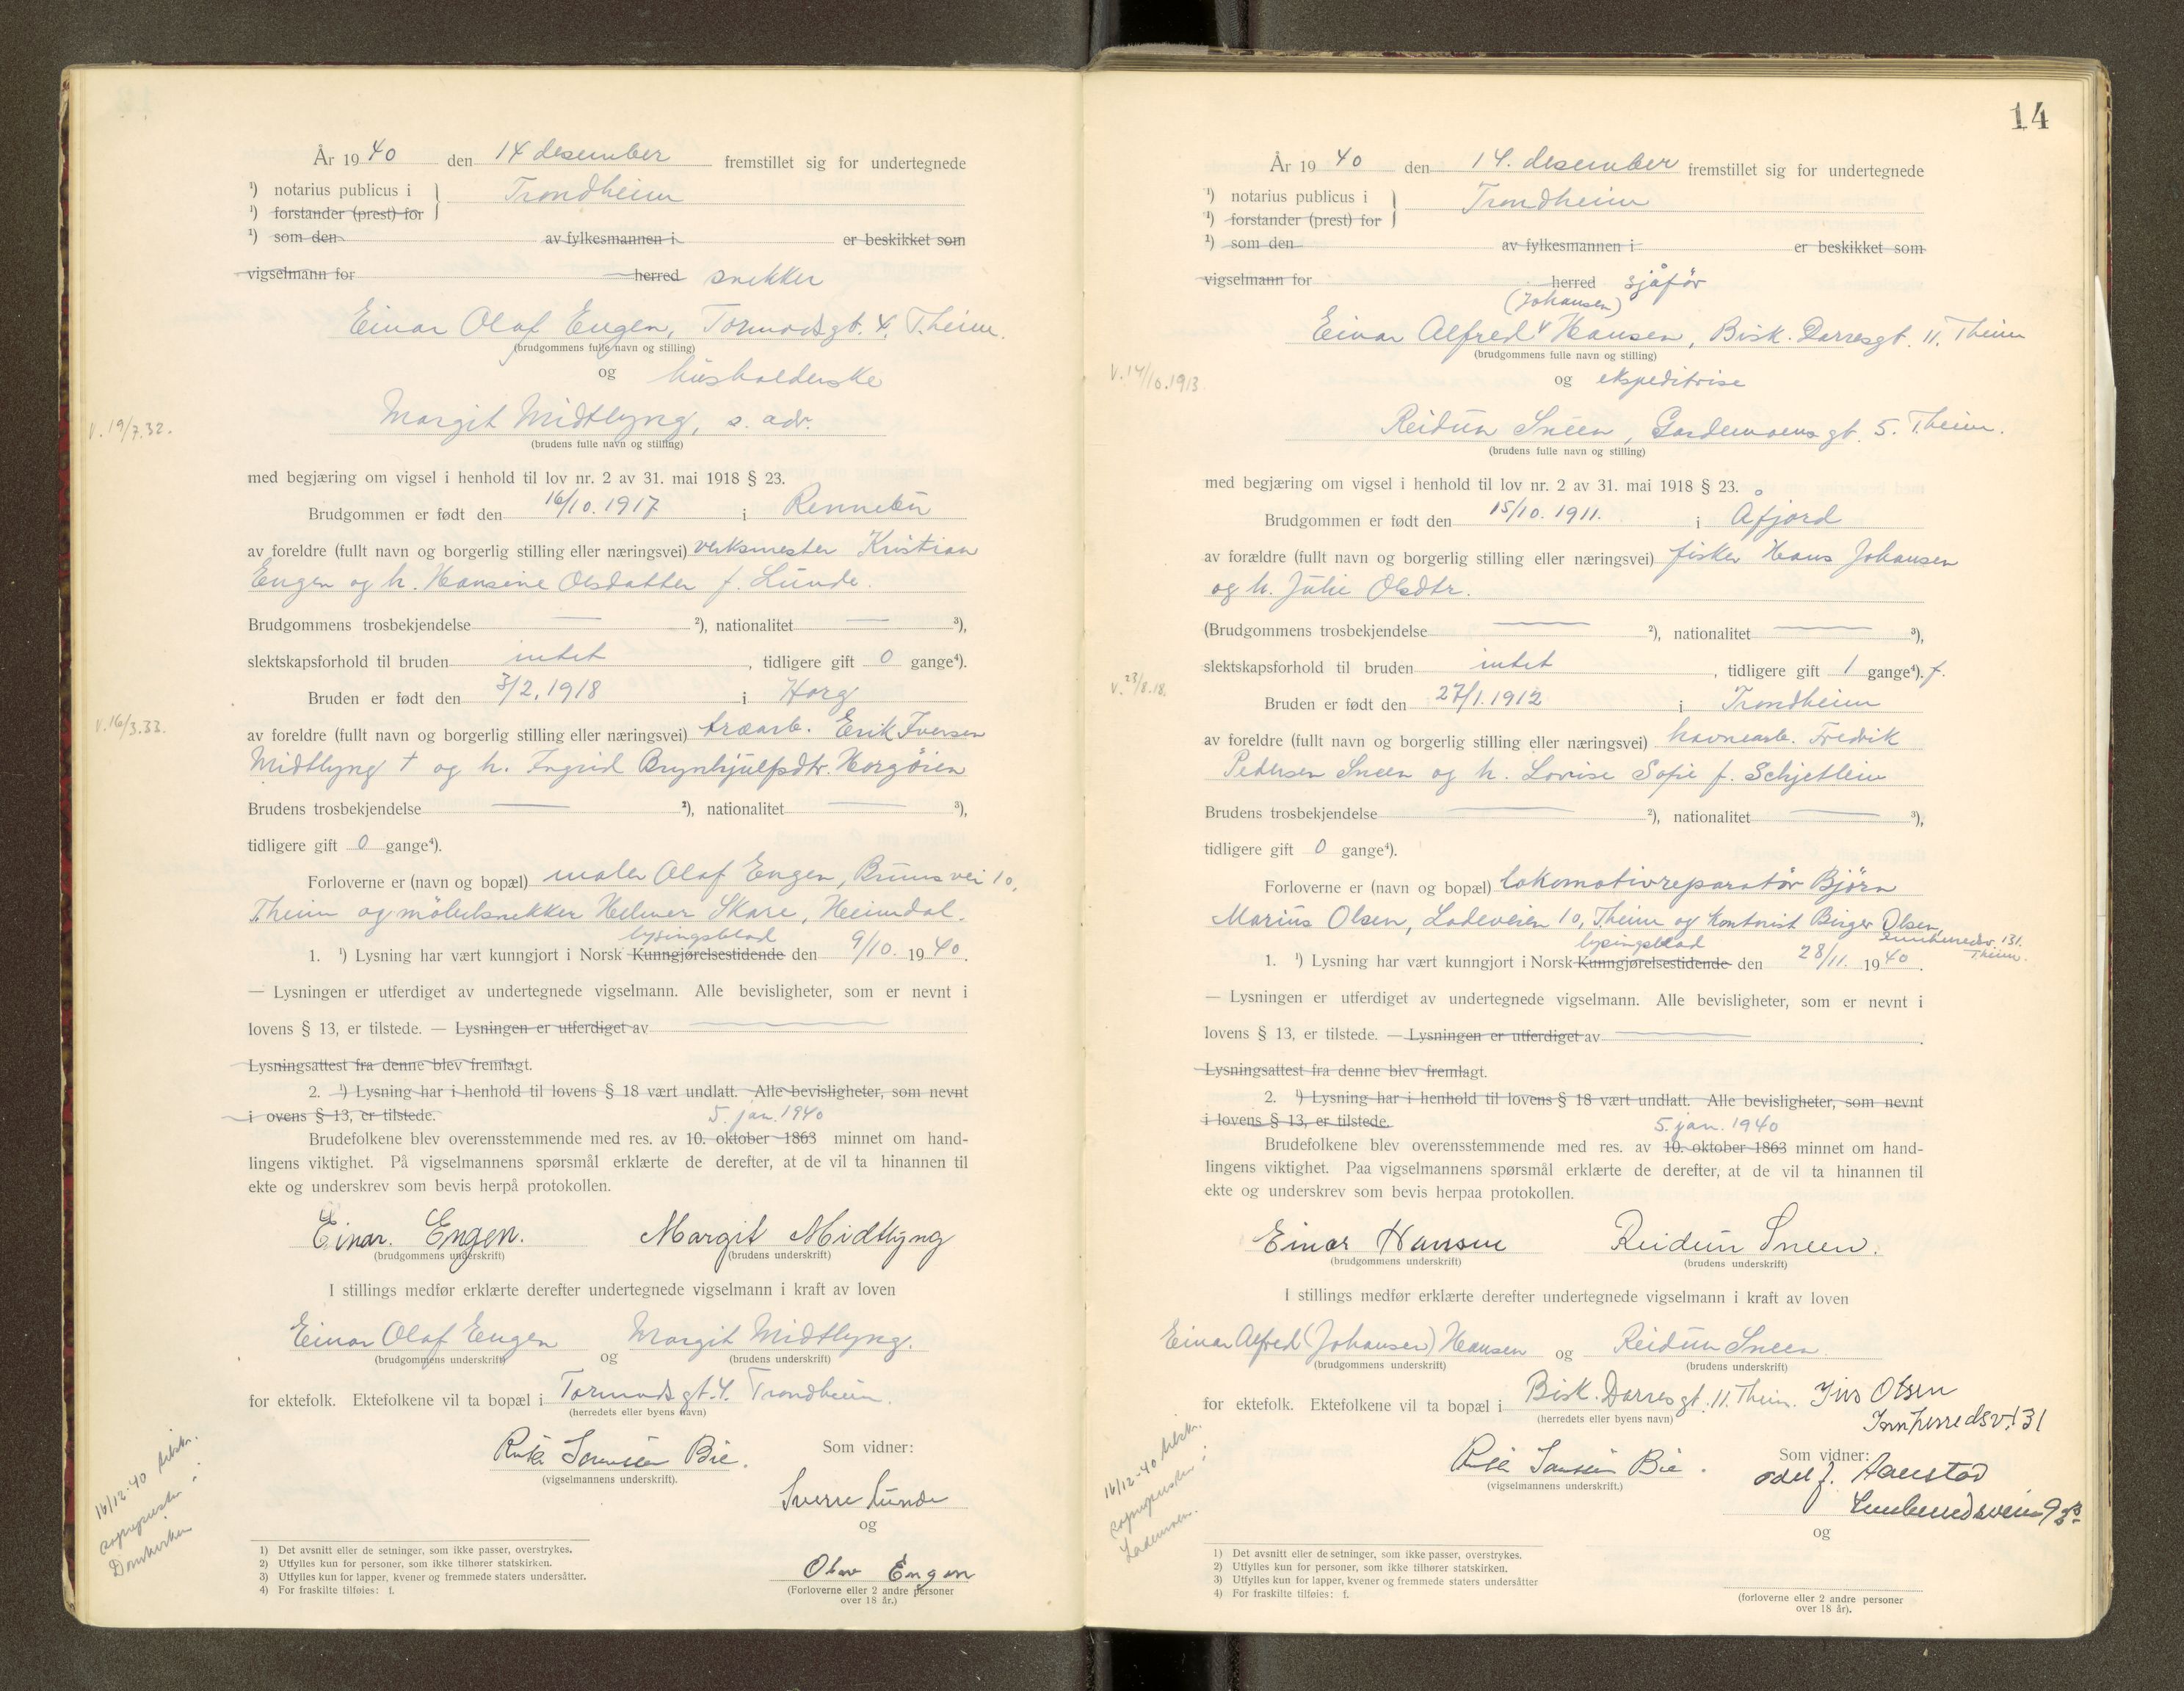 År 1940 den 14 desember fremstillet sig for undertegnede
¹) notarius publicus i } Trondheim
¹) forstander (prest) for
¹) som den av fylkesmannen i er beskikket som
vigselmann for herred snekker
Einar Olaf Engen, Tormodsgt. 4, T.heim.
(brudgommens fulle navn og stilling)
og husholderske
Margit Midtlyng, s. adr.
v. 19/7.32.
(brudens fulle navn og stilling)
med begjæring om vigsel i henhold til lov nr. 2 av 31. mai 1918 § 23.
Brudgommen er født den 16/10.1917 i Rennebu
av foreldre (fullt navn og borgerlig stilling eller næringsvei) verksmester Kristian
Engen og h. Hansine Olsdatter f. Lunde.
Brudgommens trosbekjendelse — ²), nationalitet — ³),
slektskapsforhold til bruden intet, tidligere gift 0 gange⁴).
Bruden er født den 3/2.1918 i Horg
v. 16/3.33.
av foreldre (fullt navn og borgerlig stilling eller næringsvei) trearb. Erik Iversen
Midtlyng † og h. Ingrid Brynhjulfsdtr. Horgøien
Brudens trosbekjendelse — ²), nationalitet — ³),
tidligere gift 0 gange⁴).
Forloverne er (navn og bopæl) maler Olaf Engen, Bruns vei 10,
T.heim og møbelsnekker Helmer Skare, Heimdal.
lysingsblad
1. ¹) Lysning har vært kunngjort i Norsk Kunngjørelsestidende den 9/10. 1940.
— Lysningen er utferdiget av undertegnede vigselmann. Alle bevisligheter, som er nevnt i
lovens § 13, er tilstede. — Lysningen er utferdiget av —
Lysningsattest fra denne blev fremlagt.
2. ¹) Lysning har i henhold til lovens § 18 vært undlatt. Alle bevisligheter, som nevnt
i ovens § 13, er tilstede. 5. jan. 1940
Brudefolkene blev overensstemmende med res. av 10. oktober 1863 minnet om hand-
lingens viktighet. På vigselmannens spørsmål erklærte de derefter, at de vil ta hinannen til
ekte og underskrev som bevis herpå protokollen.
Einar. Engen. Margit Midtlyng
(brudgommens underskrift) (brudens underskrift)
I stillings medfør erklærte derefter undertegnede vigselmann i kraft av loven
Einar Olaf Engen og Margit Midtlyng.
(brudgommens underskrift) (brudens underskrift)
for ektefolk. Ektefolkene vil ta bopæl i Tormodsgt. 4. Trondheim.
(herredets eller byens navn)
Bie. Som vidner:
(vigselmannens underskrift).
Sverre Lunde
og
Olav Engen
(Forloverne eller 2 andre personer
over 18 år.)
16/12-40
sognepresten i
Domkirken
1) Det avsnitt eller de setninger, som ikke passer, overstrykes.
2) Utfylles kun for personer, som ikke tilhører statskirken.
3) Utfylles kun for lapper, kvener og fremmede staters undersåtter.
4) For fraskilte tilføies: f.
14
År 1940 den 14. desember fremstillet sig for undertegnede
¹) notarius publicus i } Trondheim
¹) forstander (prest) for
¹) som den av fylkesmannen i er beskikket som
vigselmann for herred sjåfør
(Johansen)
Einar Alfred v Hansen, Bisk. Darresgt. 11. T.heim
(brudgommens fulle navn og stilling)
v. 14/10.1913
og ekspeditrise
Reidun Sneen, Gardemoensgt. 5. T.heim.
(brudens fulle navn og stilling)
med begjæring om vigsel i henhold til lov nr. 2 av 31. mai 1918 § 23.
Brudgommen er født den 15/10.1911. i Åfjord
av forældre (fullt navn og borgerlig stilling eller næringsvei) fisker Hans Johansen
og h. Julie Olsdtr.
(Brudgommens trosbekjendelse — ²), nationalitet — ³),
slektskapsforhold til bruden intet, tidligere gift 1 gange⁴). f.
v. 23/8.18.
Bruden er født den 27/1.1912 i Trondheim
av foreldre (fullt navn og borgerlig stilling eller næringsvei) havnearb. Fredrik
Pedersen Sneen og h. Lovise Sofie f. Schjetlein
Brudens trosbekjendelse — ²), nationalitet — ³),
tidligere gift 0 gange⁴).
Forloverne er (navn og bopæl) lokomotivreparatør Bjørn
Marius Olsen, Ladeveien 10, T.heim og kontorist Birger Olsen,
Innherredsv. 131. T.heim.
lysingsblad
1. ¹) Lysning har vært kunngjort i Norsk Kunngjørelsestidende den 28/11. 1940.
— Lysningen er utferdiget av undertegnede vigselmann. Alle bevisligheter, som er nevnt i
lovens § 13, er tilstede. — Lysningen er utferdiget av —
Lysningsattest fra denne blev fremlagt.
2. ¹) Lysning har i henhold til lovens § 18 vært undlatt. Alle bevisligheter, som nevnt
i lovens § 13, er tilstede. 5. jan. 1940
Brudefolkene blev overensstemmende med res. av 10. oktober 1863 minnet om hand-
lingens viktighet. Paa vigselmannens spørsmål erklærte de derefter, at de vil ta hinannen til
ekte og underskrev som bevis herpaa protokollen.
Einar Hansen Reidun Sneen.
(brudgommens underskrift) (brudens underskrift)
I stillings medfør erklærte derefter undertegnede vigselmann i kraft av loven
Einar Alfred (Johansen) Hansen og Reidun Sneen.
(brudgommens underskrift) (brudens underskrift)
for ektefolk. Ektefolkene vil ta bopæl i Bisk. Darresgt. 11. T.heim. Olsen
(herredets eller byens navn) Innherredsv. 131
Bie. Som vidner:
(vigselmannens underskrift.)
Odd J. Aanstad
og
(forloverne eller 2 andre personer
over 18 år).
16/12-40
sognepresten i
Lademoen.
1) Det avsnitt eller de setninger, som ikke passer, overstrykes.
2) Utfylles kun for personer, som ikke tilhører statskirken.
3) Utfylles kun for lapper, kvener og fremmede staters undersåtter
4) For fraskilte tilføies: f.